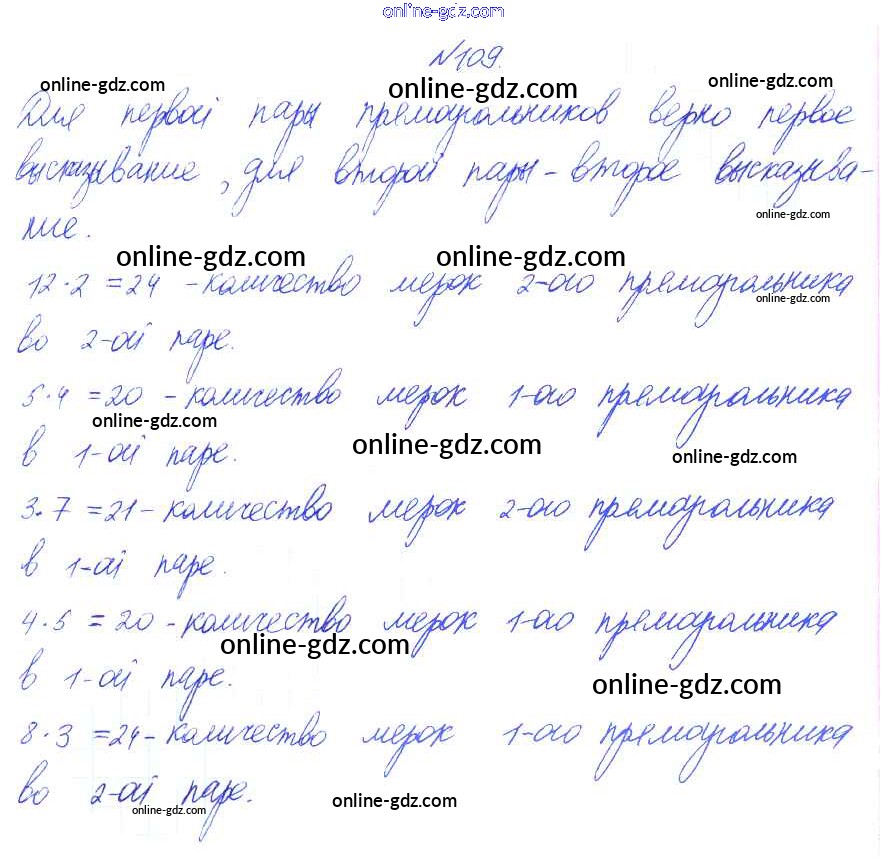 online-gdz.com
№109.
online-gdz.com online-gdz.com online-gdz.com
Для первой пары прямоугольников верно первое
высказывание, для второй пары - второе высказыва-
online-gdz.com
ние.
online-gdz.com online-gdz.com
12·2 = 24 - количество мерок 2-ого прямоугольника
online-gdz.com
во 2-ой паре.
5·4 = 20 - количество мерок 1-ого прямоугольника
online-gdz.com
в 1-ой паре.
online-gdz.com online-gdz.com
3·7 = 21 - количество мерок 2-ого прямоугольника
в 1-ой паре.
4·5 = 20 - количество мерок 1-ого прямоугольника
online-gdz.com
в 1-ой паре.
online-gdz.com
8·3 = 24 - количество мерок 1-ого прямоугольника
во 2-ой паре.
online-gdz.com online-gdz.com